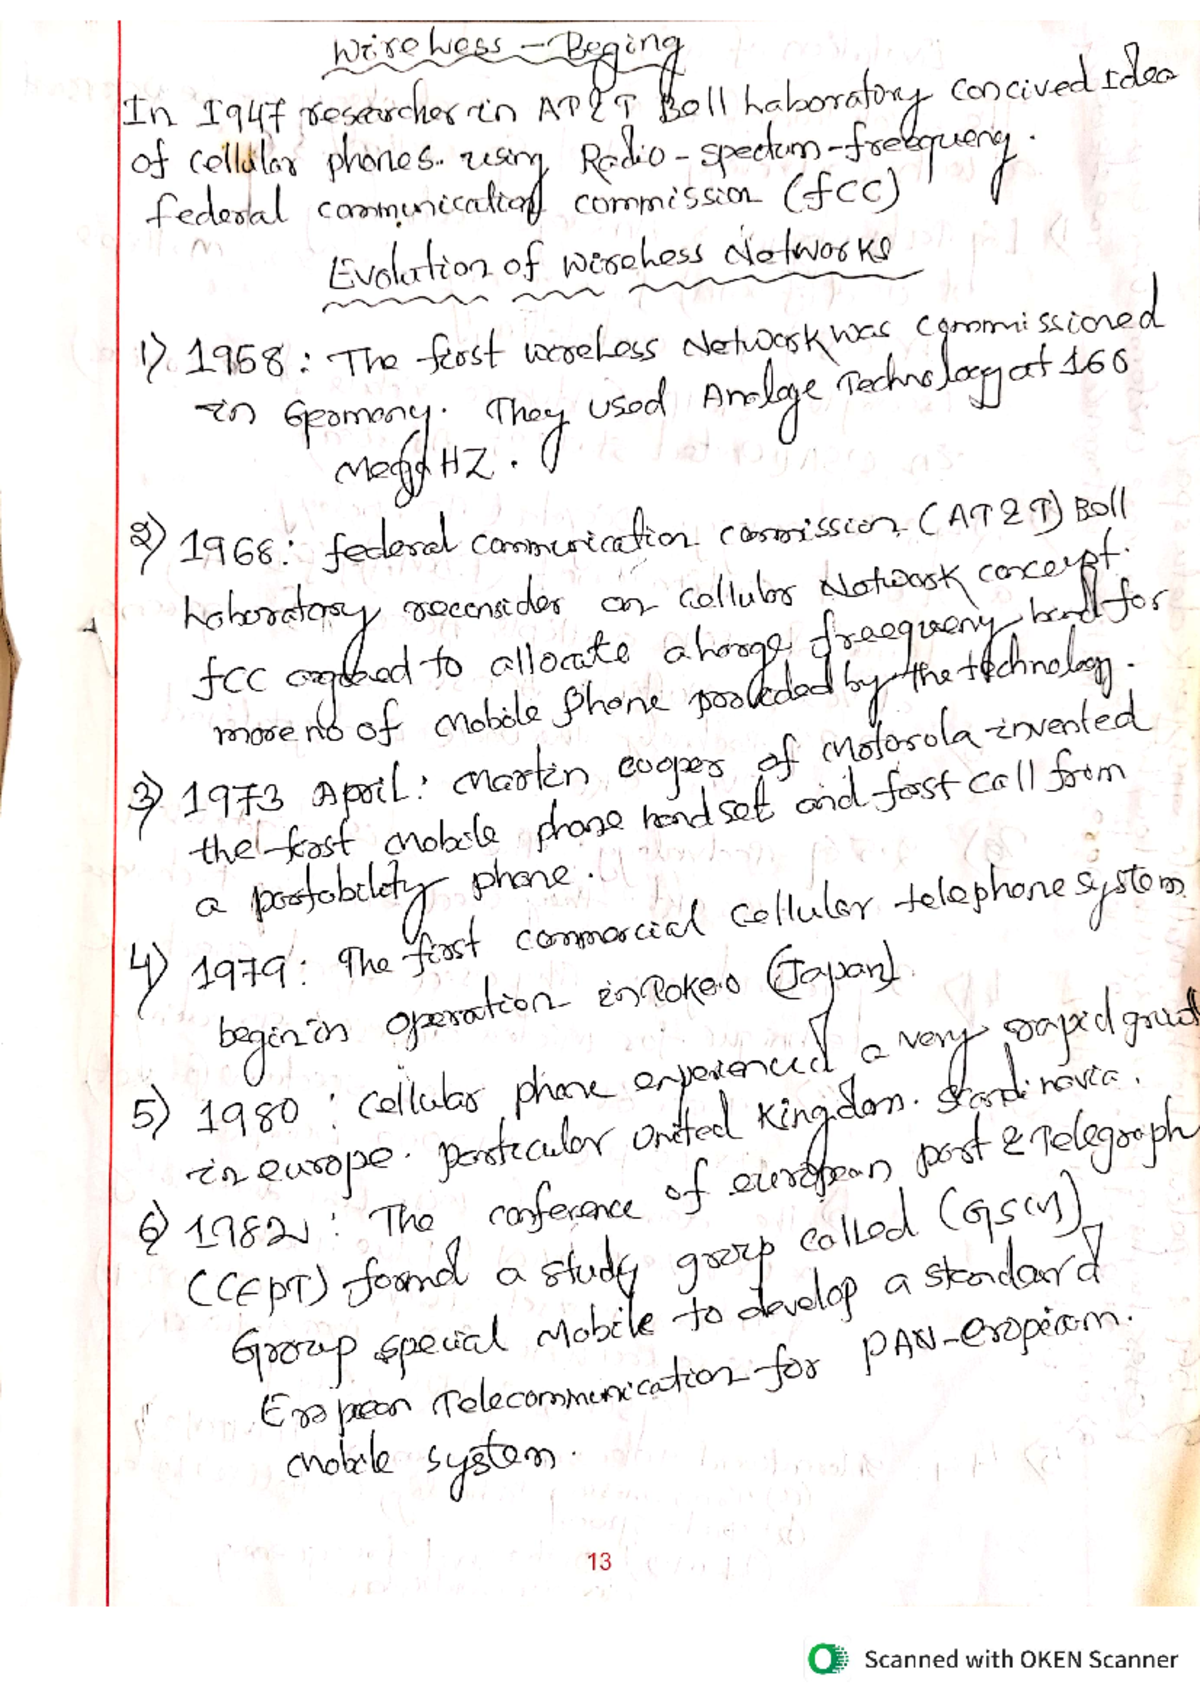 Wireless - Beging
In 1947 researcher in AT&T Bell Laboratory concived Idea
of cellular phones. using Radio - spectum - freequeny.
federal communication commission (fCC)
Evolution of wireless Networks
1) 1958 : The first wireless Network was commissioned
in Germany. They used Analoge Technology at 160
Mega HZ.
2) 1968 : federal communication commission (AT&T) Bell
Laboratory reconsider on cellular Network concept.
fCC agreed to allocate a large freequeny band for
more no of mobile phone provided by the technology.
3) 1973 April : Martin cooper of Motorola invented
the first mobile phone hand set and first call from
a portability phone.
4) 1979 : The first commercial cellular telephone system
begin in operation in Tokeo (Japan)
5) 1980 : cellular phone experienced a very rapid
in europe. particular United Kingdom. Skandinavia.
6) 1982 : The conference of european post & Telegraph
(CEPT) formed a study group called (GSM)
Group special Mobile to develop a standard
European Telecommunication for PAN-eropiam.
mobile system.
13
Scanned with OKEN Scanner